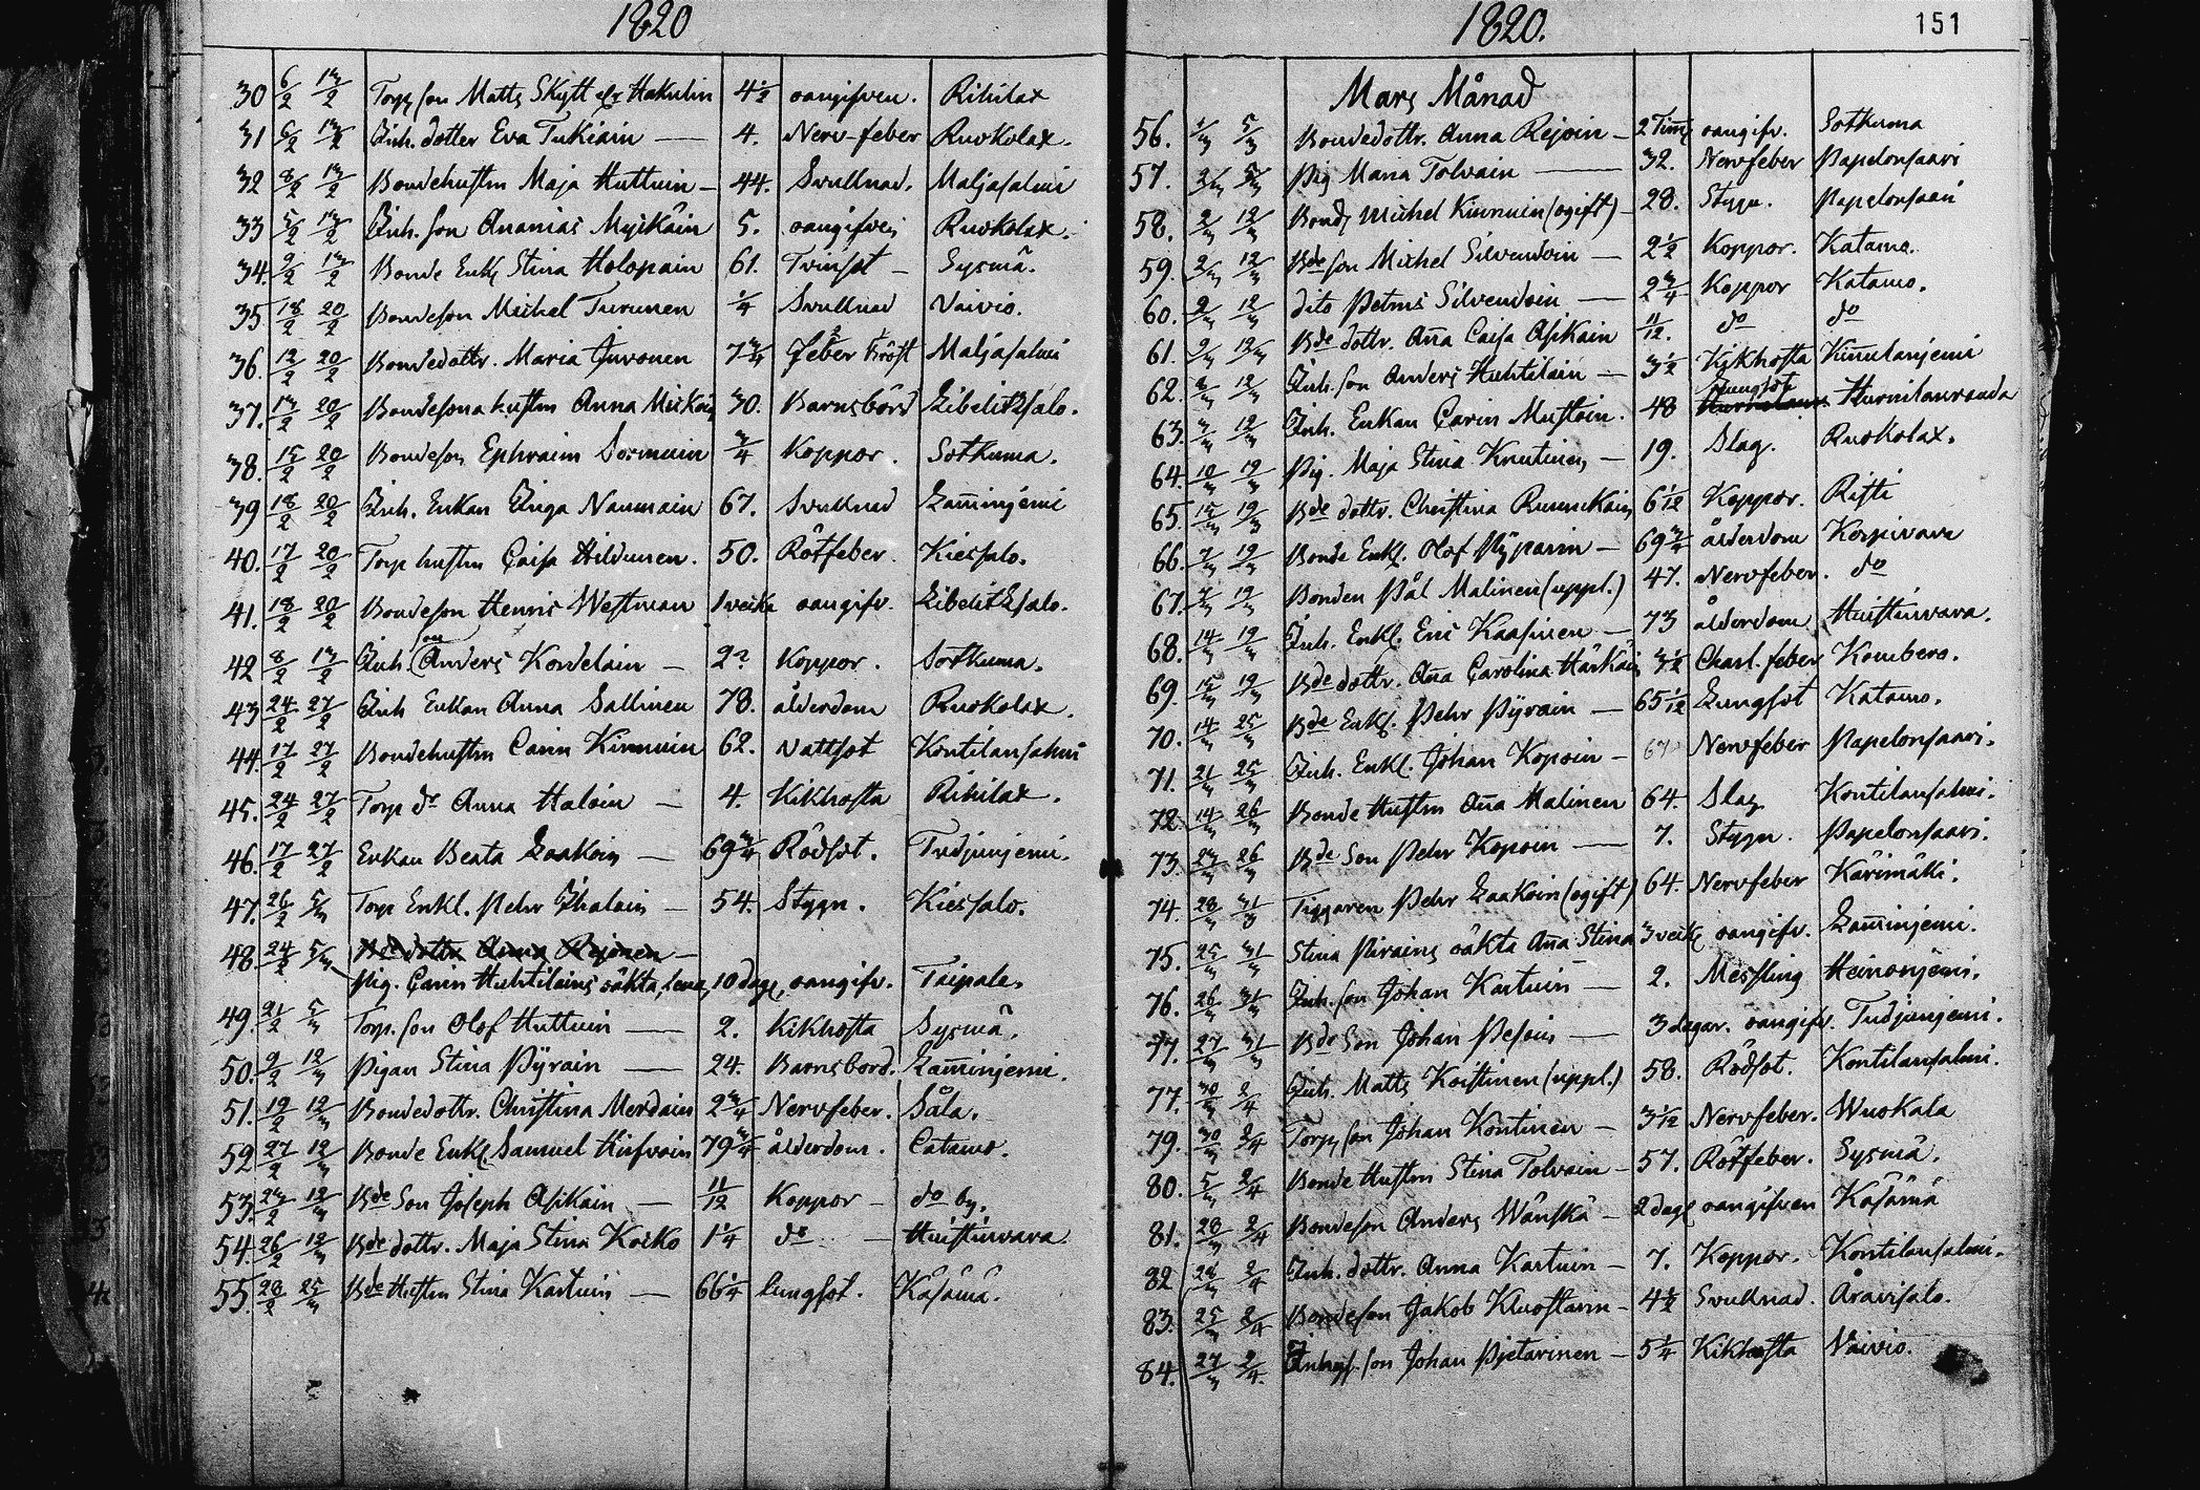 1820
30 6/2 13/2 Torp. son Matts Skytt elr Hakulin 4 1/2 oangifven. Rikilax
31 6/2 13/2 Inh. dotter Eva Tukiain — 4. Nerv-feber Ruokolax.
32 8/2 13/2 Bondehustru Maja Huttuin — 44. Svullnad. Maljasalmi
33 5/2 13/2 Inh. son Ananias Myikäin 5. oangifven Ruokolax.
34. 9/2 13/2 Bonde Enk. Stina Holopain 61. Tvinsot — Sysmä.
35 18/2 20/2 Bondeson Michel Turunen 1/4 Svullnad Vaivio.
36. 12/2 20/2 Bondedottr. Maria Juvonen 7 3/4 feber Bröst Maljasalmi
37. 13/2 20/2 Bondesona hustru Anna 30. Barnsbörd Libelitzsalo.
38. 15/2 20/2 Bondeson Ephraim Sormuin 3/4 Koppor. Sotkuma.
39 18/2 20/2 Inh. Enkan Inga Naumain 67. Svullnad Lam̄injemi
40. 17/2 20/2 Torp hustru Caisa Hildunen. 50. Rötfeber. Kiessalo.
41. 18/2 20/2 Bondeson Henric Westman 1 veika oangifv. Libelitzsalo.
42 8/2 13/2 Inh. son Anders Kordelain — 2? Koppor. Sotkuma.
43 24/2 27/2 Inh Enkan Anna Sallinen 78. ålderdom Ruokolax.
44. 17/2 27/2 Bondehustru Carin Kinnuin 62. Vattsot Kontilansalmi
45. 24/2 27/2 Torp dr Anna Haloin — 4. Kikhosta Rikilax.
46. 17/2 27/2 Enkan Beata Laakoin — 69 3/4 Rödsot. Tudjunjemi.
47. 26/2 5/3 Torp Enkl. Pehr Ihalain — 54. Stygn. Kiessalo.
48. 24/2 5/3 Bde dottr Anna Rejonen —
Pig. Carin Huhtilains oäkta, Lena, 10 dag, oangifv. Taipale.
49. 21/2 5/3 Torp. son Olof Huttuin — 2. Kikhosta Sysmä.
50. 9/2 12/3 Pigan Stina Pÿrain — 24. Barnsbörd. Lam̄injemi.
51. 19/2 12/3 Bondedottr. Christina Merdain 2 3/4 Nervfeber. Såla.
52 27/2 12/3 Bonde Enkl. Samuel Hirfvoin 79 3/4 ålderdom. Catamo.
53. 23/2 12/3 Bde Son Joseph Asikain — 11/12 Koppor — do by.
54. 26/2 12/3 Bde dottr. Maja Stina Koiko 1 1/4 do — Huistinvara
55. 28/2 25/3 Bde Hustru Stina Kartuin — 66 1/4 lungsot. Käsämä.
1820.
151
Mars Månad
56. 1/3 5/3 Bondedottr. Anna Rejoin — 2 Tim̄ oangifv. Sotkuma
57. 3/3 5/3 Pig Maria Tolvain — 32. Nervfeber Papelonsaari
58. 2/3 12/3 Bond Michel Kinnuin (ogift) — 28. Stygn. Papelonsaari
59. 2/3 12/3 Bde son Michel Silvendoin — 2 1/2 Koppor. Katamo.
60. 2/3 12/3 dito Petrus Silvendoin — 2 3/4 Koppor Katamo.
61. 9/3 12/3 Bde dottr. An̄a Caisa Asikain 11/12. do do
62. 8/3 12/3 Inh. son Anders Huhtilain — 3 1/2 Kikhosta Kin̄ulanjemi
63. 3/3 12/3 Inh. Enkan Carin Mustoin. 48 Lungsot Hurnilanranda
64. 10/3 19/3 Pig. Maja Stina Knutinen — 19. Slag. Ruokolax.
65. 15/3 19/3 Bde dottr. Christina Runnukain 6 1/12 Koppor. Risti
66. 7/3 19/3 Bonde Enkl. Olof Pÿparin — 69 3/4 ålderdom Korpivara
67. 7/3 19/3 Bonden Pål Malinen (uppl.) 47. Nervfeber. do
68. 14/3 19/3 Inh. Enkl. Eric Kaasinen — 73 ålderdom Huistinvara.
69. 15/3 19/3 Bde dottr. An̄a Carolina Härkäin 3 1/2 Charl. feber Kombero.
70. 14/3 25/3 Bde Enkl. Pehr Pÿrain — 65 1/12 Lungsot Katamo.
71. 21/3 25/3 Inh. Enkl. Johan Kopoin — 67 Nervfeber Papelonsaari.
72 14/3 26/3 Bonde Hustru An̄a Malinen 64. Slag Kontilansalmi.
73. 23/3 26/3 Bde Son Pehr Kopoin — 7. Stygn. Papelonsaari.
74. 28/3 31/3 Tiggaren Pehr Laakoin (ogift) 64. Nervfeber Kärimäki.
75. 25/3 31/3 Stina Pirains oäkta An̄a Stina 3 veik oangifv. Lam̄injemi.
76. 26/3 31/3 Inh. son Johan Kartuin — 2. Messling Heinonjemi.
77. 27/3 31/3 Bde Son Johan Pesoin — 3 dagar. oangifv. Tudjunjemi.
77. 30/3 2/4 Inh. Matts Koistinen (uppl.) 58. Rödsot. Kontilansalmi.
79. 30/3 2/4 Torp son Johan Kontinen — 3 1/12 Nervfeber. Wuokala
80. 5/3 2/4 Bonde Hustru Stina Tolvain — 57. Rötfeber. Sysmä.
81. 28/3 2/4 Bondeson Anders Wänskä — 2 dag oangifven Käsämä
82 28/3 2/4 Inh. dottr. Anna Kartuin — 7. Koppor. Kontilansalmi.
83. 25/3 2/4 Bondeson Jakob Kluostarin — 4 1/2 Svullnad. Aravisalo.
84. 27/3 2/4. Inhys. son Johan Pjetarinen — 5 1/4 Kikhosta Vaivio.